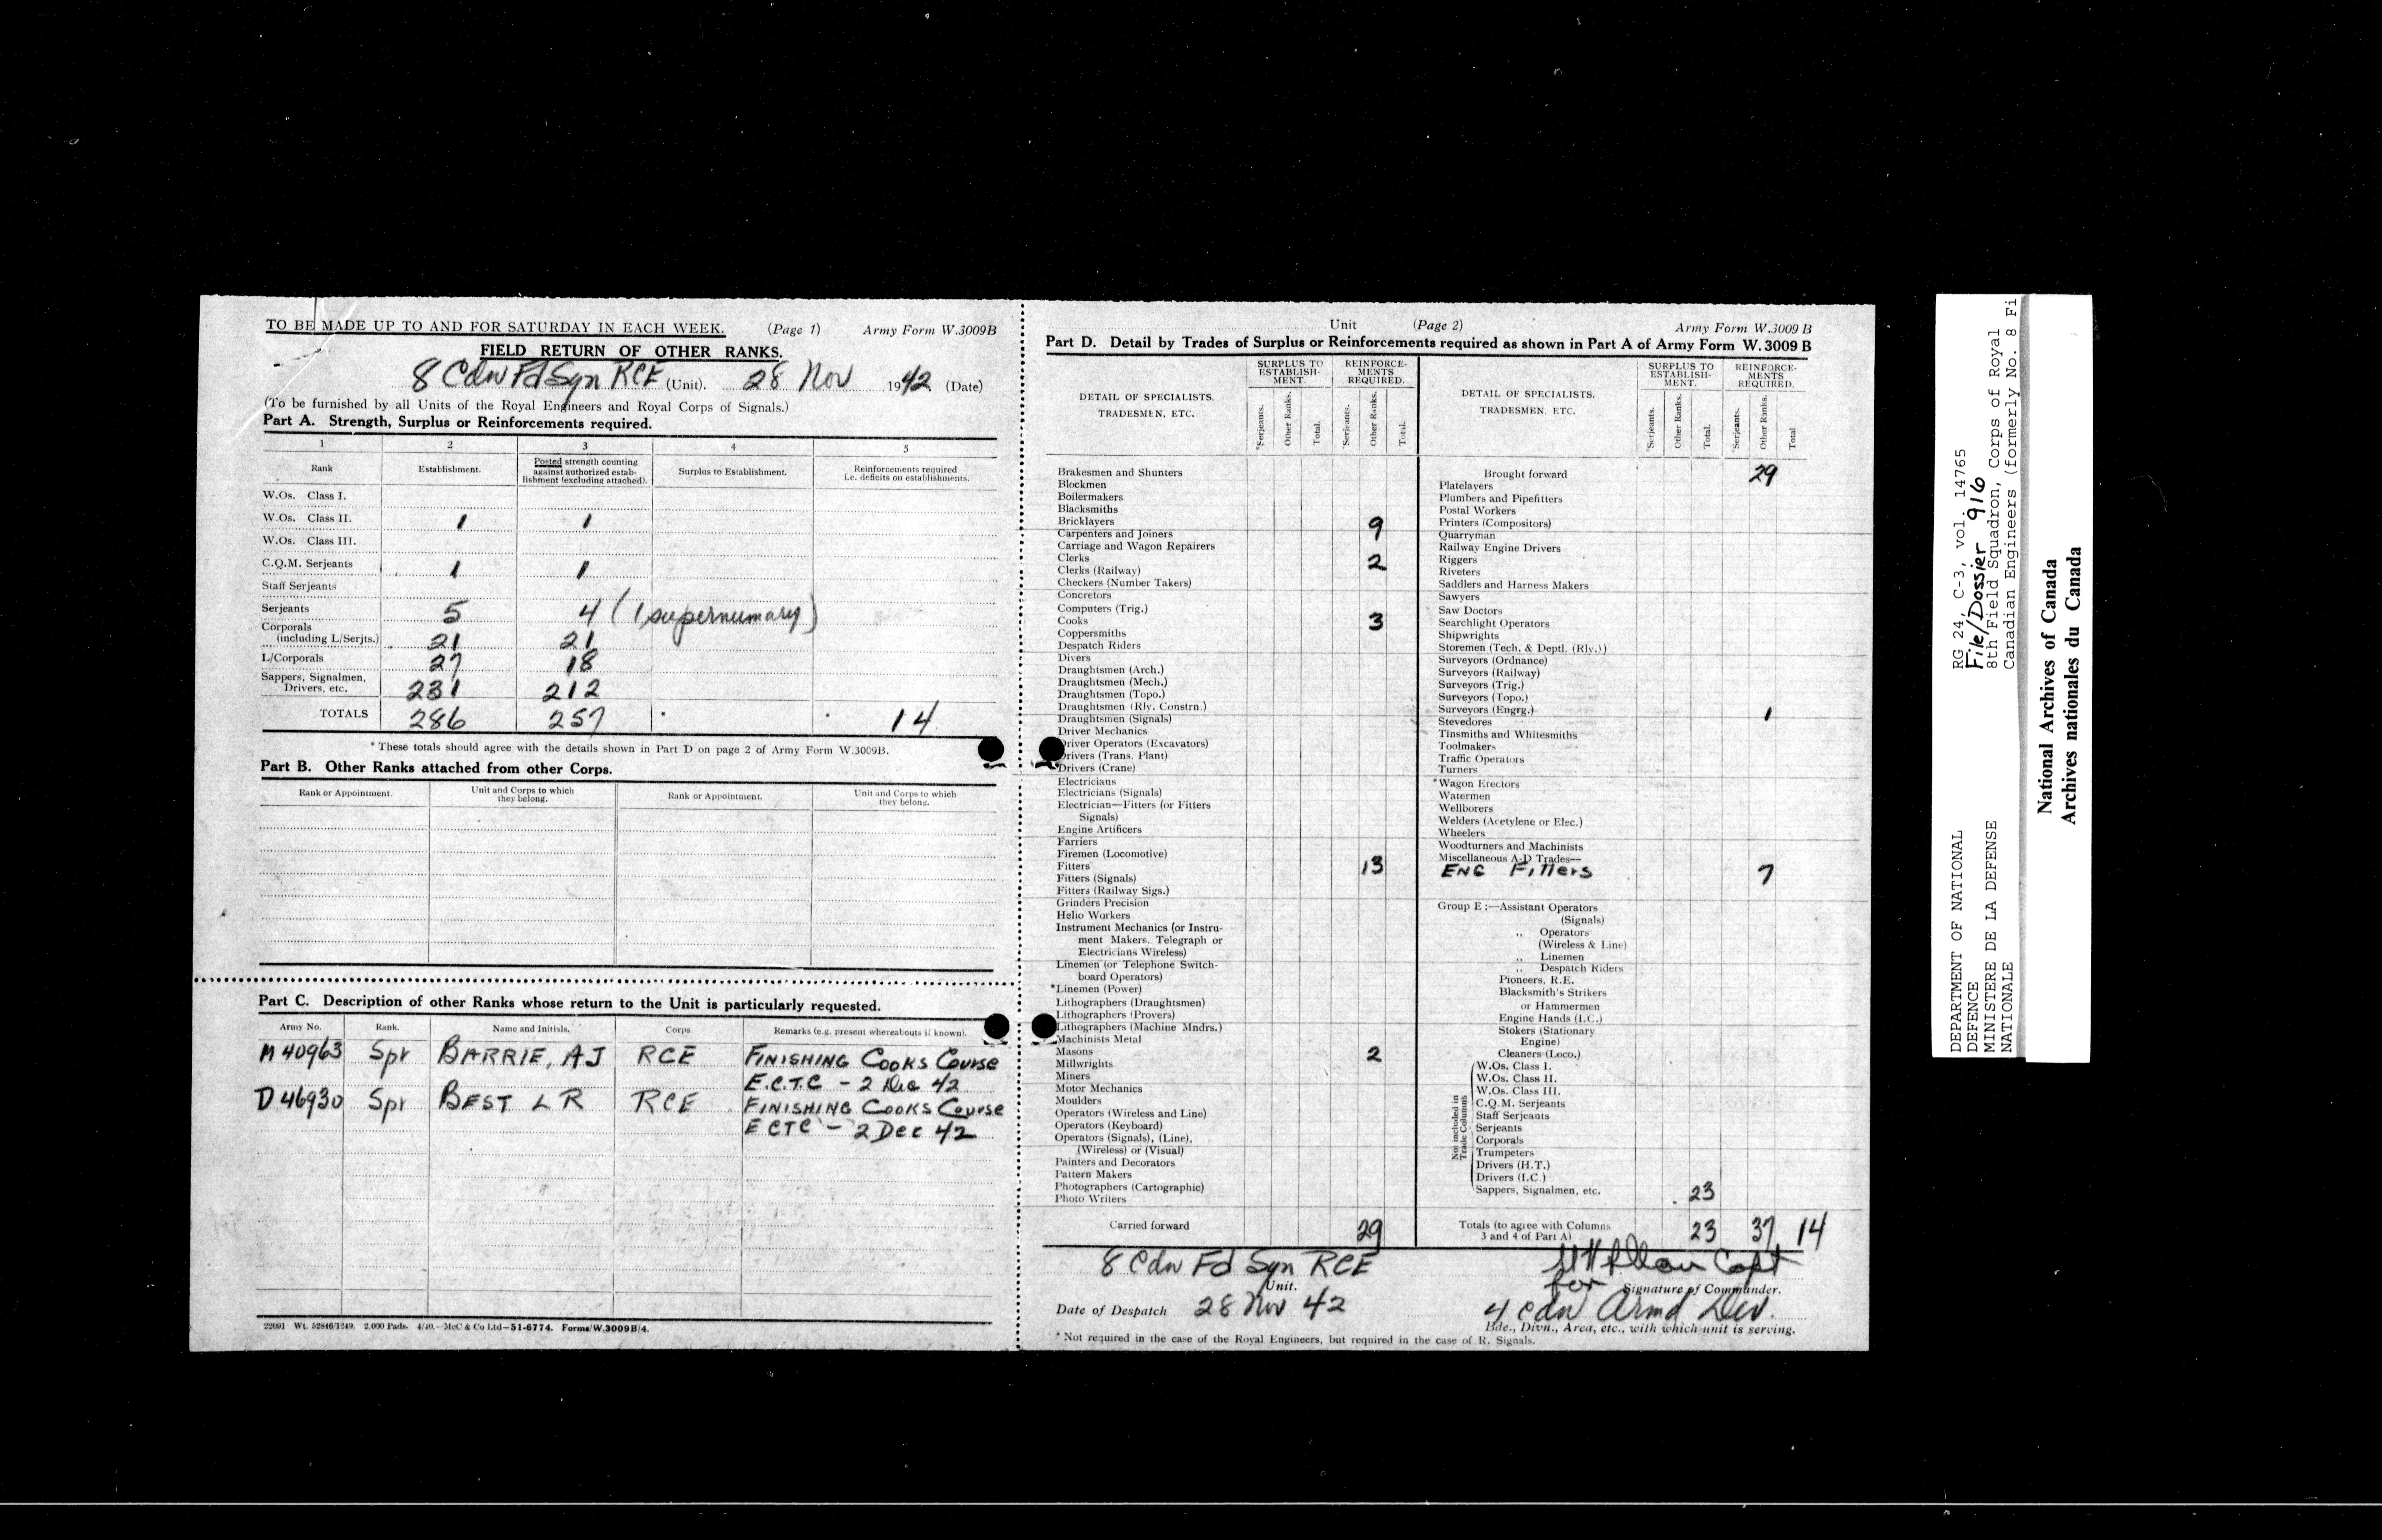 TO BE MADE UP TO AND FOR SATURDAY IN EACH WEEK. (Page 1) Army Form W.3009B
FIELD RETURN OF OTHER RANKS.
8 Cdn Fd Sqn RCE (Unit). 28 Nov 1942 (Date)
(To be furnished by all Units of the Royal Engineers and Royal Corps of Signals.)
Part A. Strength, Surplus or Reinforcements required.
1 2 3 4 5
Rank Establishment. Posted strength counting against authorized establishment (excluding attached). Surplus to Establishment. Reinforcements required i.e. deficits on establishments.
W.Os. Class I.
W.Os. Class II. 1 1
W.Os. Class III.
C.Q.M. Serjeants 1 1
Staff Serjeants
Serjeants 5 4 (1 supernumary)
Corporals
(including L/Serjts.) 21 21
L/Corporals 27 18
Sappers, Signalmen,
Drivers, etc. 231 212
TOTALS 286 257 14
* These totals should agree with the details shown in Part D on page 2 of Army Form W.3009B.
Part B. Other Ranks attached from other Corps.
Rank or Appointment. Unit and Corps to which they belong. Rank or Appointment. Unit and Corps to which they belong.
Part C. Description of other Ranks whose return to the Unit is particularly requested.
Army No. Rank. Name and Initials. Corps Remarks (e.g. present whereabouts if known).
M 40963 Spr BARRIE, AJ RCE FINISHING COOKS COURSE
E.C.T.C - 2 Dec 42
D 46930 Spr BEST L R RCE FINISHING COOKS COURSE
E CTC - 2 Dec 42
22091 Wt. 52846/1249. 2,000 Pads. 4/40.—McC & Co Ltd—51-6774. Forms/W.3009B/4.
Unit (Page 2) Army Form W.3009 B
Part D. Detail by Trades of Surplus or Reinforcements required as shown in Part A of Army Form W. 3009 B
DETAIL OF SPECIALISTS, TRADESMEN, ETC.
SURPLUS TO ESTABLISHMENT. REINFORCEMENTS REQUIRED.
*Serjeants. Other Ranks. Total. Serjeants. Other Ranks. Total.
Brakesmen and Shunters
Blockmen
Boilermakers
Blacksmiths
Bricklayers 9
Carpenters and Joiners
Carriage and Wagon Repairers
Clerks 2
Clerks (Railway)
Checkers (Number Takers)
Concretors
Computers (Trig.)
Cooks 3
Coppersmiths
Despatch Riders
Divers
Draughtsmen (Arch.)
Draughtsmen (Mech.)
Draughtsmen (Topo.)
Draughtsmen (Rly. Constrn.)
Draughtsmen (Signals)
Driver Mechanics
Driver Operators (Excavators)
Drivers (Trans. Plant)
Drivers (Crane)
Electricians
Electricians (Signals)
Electrician—Fitters (or Fitters
Signals)
Engine Artificers
Farriers
Firemen (Locomotive)
Fitters 13
Fitters (Signals)
Fitters (Railway Sigs.)
Grinders Precision
Helio Workers
Instrument Mechanics (or Instru-
ment Makers. Telegraph or
Electricians Wireless)
Linemen (or Telephone Switch-
board Operators)
*Linemen (Power)
Lithographers (Draughtsmen)
Lithographers (Provers)
Lithographers (Machine Mndrs.)
Machinists Metal
Masons 2
Millwrights
Miners
Motor Mechanics
Moulders
Operators (Wireless and Line)
Operators (Keyboard)
Operators (Signals), (Line),
(Wireless) or (Visual)
Painters and Decorators
Pattern Makers
Photographers (Cartographic)
Photo Writers
Carried forward 29
DETAIL OF SPECIALISTS, TRADESMEN, ETC.
SURPLUS TO ESTABLISHMENT. REINFORCEMENTS REQUIRED.
Serjeants. Other Ranks. Total. Serjeants. Other Ranks. Total
Brought forward 29
Platelayers
Plumbers and Pipefitters
Postal Workers
Printers (Compositors)
Quarryman
Railway Engine Drivers
Riggers
Riveters
Saddlers and Harness Makers
Sawyers
Saw Doctors
Searchlight Operators
Shipwrights
Storemen (Tech. & Deptl. (Rly.))
Surveyors (Ordnance)
Surveyors (Railway)
Surveyors (Trig.)
Surveyors (Topo.)
Surveyors (Engrg.) 1
Stevedores
Tinsmiths and Whitesmiths
Toolmakers
Traffic Operators
Turners
*Wagon Erectors
Watermen
Wellborers
Welders (Acetylene or Elec.)
Wheelers
Woodturners and Machinists
Miscellaneous A-D Trades—
ENG Fitters 7
Group E :—Assistant Operators
(Signals)
,, Operators
(Wireless & Line)
,, Linemen
,, Despatch Riders
Pioneers, R.E.
Blacksmith's Strikers
or Hammermen
Engine Hands (I.C.)
Stokers (Stationary
Engine)
Cleaners (Loco.)
Not included in Trade Columns
W.Os. Class I.
W.Os. Class II.
W.Os. Class III.
C.Q.M. Serjeants
Staff Serjeants
Serjeants
Corporals
Trumpeters
Drivers (H.T.)
Drivers (I.C.)
Sappers, Signalmen, etc. 23
Totals (to agree with Columns
3 and 4 of Part A) 23 37 14
8 Cdn Fd Sqn RCE
Unit.
Capt
for Signature of Commander.
Date of Despatch 28 Nov 42
4 Cdn Armd Div.
Bde., Divn., Area, etc., with which unit is serving.
* Not required in the case of the Royal Engineers, but required in the case of R. Signals.
DEPARTMENT OF NATIONAL
DEFENCE
MINISTERE DE LA DEFENSE
NATIONALE
RG 24, C-3, vol. 14765
File/Dossier 916
8th Field Squadron, Corps of Royal
Canadian Engineers (formerly No. 8 Fi
National Archives of Canada
Archives nationales du Canada